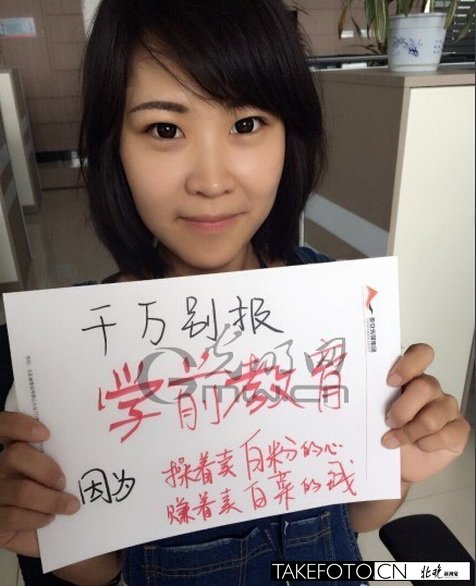 千万别报
学前教育
因为
操着卖白粉的心
赚着卖白菜的钱
光明网
TAKEFOTO.CN 北晚新视觉